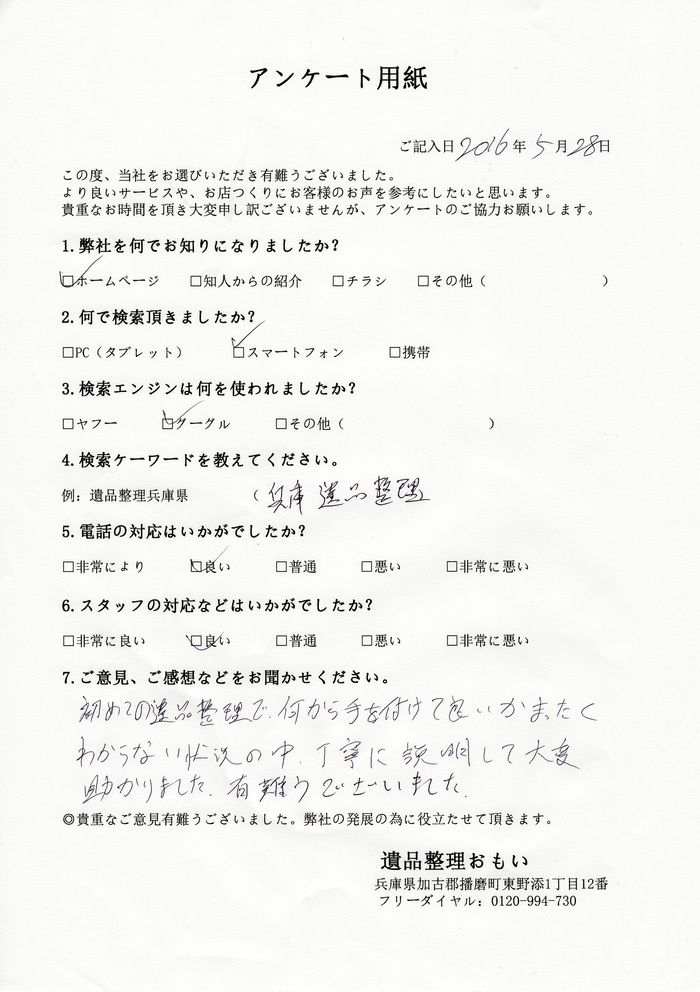 アンケート用紙
ご記入日 2016 年 5 月 28 日
この度、当社をお選びいただき有難うございました。
より良いサービスや、お店つくりにお客様のお声を参考にしたいと思います。
貴重なお時間を頂き大変申し訳ございませんが、アンケートのご協力お願いします。
1.弊社を何でお知りになりましたか？
☑ホームページ □知人からの紹介 □チラシ □その他（ ）
2.何で検索頂きましたか？
□PC（タブレット） ☑スマートフォン □携帯
3.検索エンジンは何を使われましたか？
□ヤフー ☑グーグル □その他（ ）
4.検索ケーワードを教えてください。
例：遺品整理兵庫県 （兵庫 遺品整理
5.電話の対応はいかがでしたか？
□非常により ☑良い □普通 □悪い □非常に悪い
6.スタッフの対応などはいかがでしたか？
□非常に良い ☑良い □普通 □悪い □非常に悪い
7.ご意見、ご感想などをお聞かせください。
初めての遺品整理で、何から手を付けて良いかまったく
わからない状況の中、丁寧に説明して大変
助かりました。有難うございました。
◎貴重なご意見有難うございました。弊社の発展の為に役立たせて頂きます。
遺品整理おもい
兵庫県加古郡播磨町東野添1丁目12番
フリーダイヤル：0120-994-730